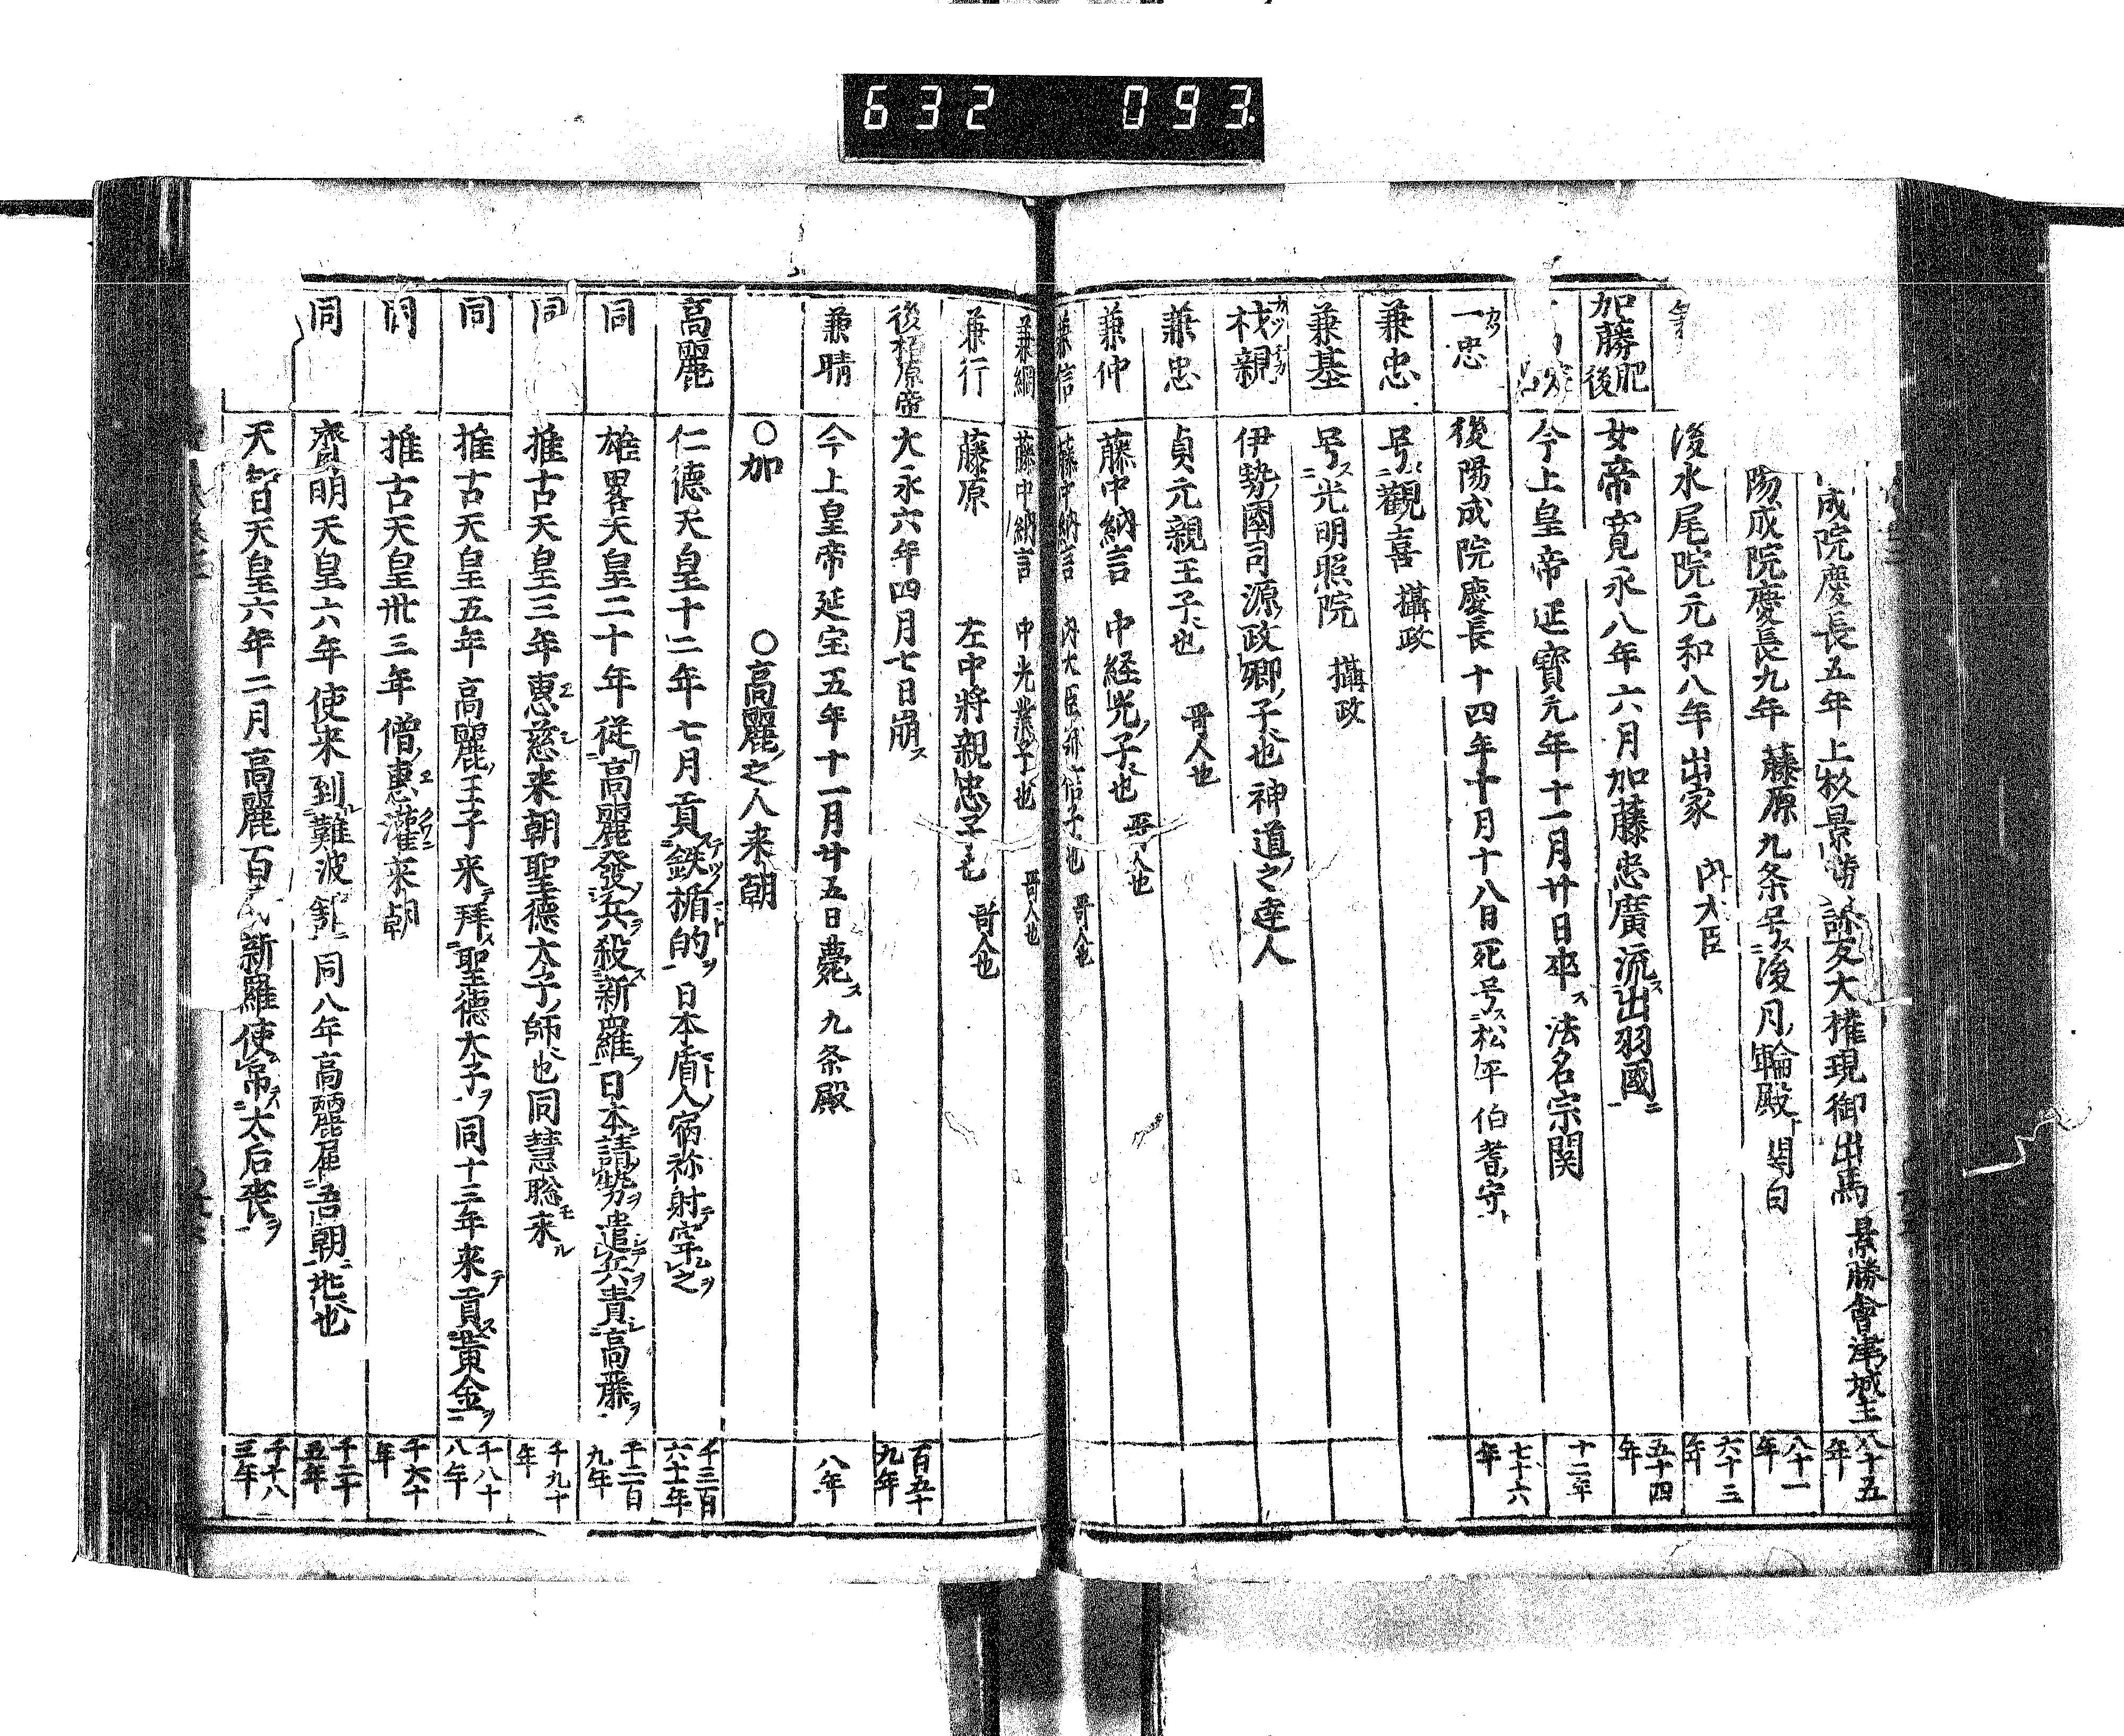 632 093
成院慶長五年 上杦景勝 謀反大権現御出馬 景勝會津城主 八十五年
陽成院慶長九年 藤原九条号ス後ノ月ノ輪殿ト 関白 八十一年
後水尾院元和八年 出家 内大臣 六十三年
加藤肥後 女帝寛永八年六月加藤忠廣流ス出羽國ニ 五十四年
今上皇帝延寳元年十一月廿日卒ス 法名宗関 十二年
一忠 後陽成院慶長十四年十月十八日死号ス松平伯耆守ト 七十六年
兼忠 号ス觀喜 攝政
兼基 号ス光明照院 攝政
材親 伊勢ノ國司源ノ政卿ノ子也神道之達人
兼忠 貞元親王子也 哥人也
兼仲 藤中納言 中経光ノ子也 哥人也
兼信 藤中納言 内大臣 子也 哥人也
兼綱 藤中納言 中光業子也 哥人也
兼行 藤原 左中將親忠ノ子也 哥人也
後栢原帝 大永六年四月七日崩ス 百五十九年
兼晴 今上皇帝延宝五年十一月廿五日薨ス 九条殿 八年
○加 ○高麗ノ之人来朝
高麗 仁德天皇十二年七月貢ス鉄楯的ヲ 日本盾人宿祢射テ穿之ヲ 千三百六十一年
同 雄畧天皇二十年従リ高麗發ノ兵ヲ殺ス新羅ヲ 日本請勢ヲ遣テ兵ヲ責シ高麗ヲ 千二百九年
同 推古天皇三年惠慈来朝聖德太子ノ師也同慧聡モ来ル 千九十年
同 推古天皇五年高麗ノ王子来テ拜ス聖德太子ヲ 同十三年来テ貢ス黄金ヲ 千八十八年
同 推古天皇卅三年僧惠灌来朝 千六十年
同 齊明天皇六年使来到ル難波 同八年高麗 吾朝 地也 千二十五年
天智天皇六年二月高麗百 新羅使 吊ス太后喪ヲ 千十八三年